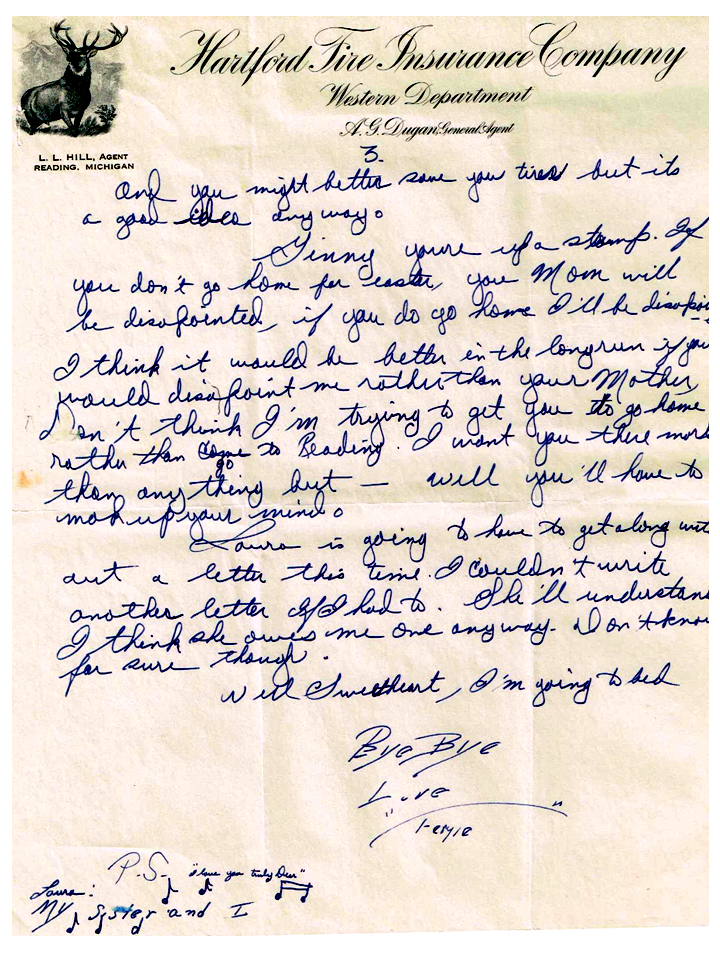 Hartford Fire Insurance Company
Western Department
A. G. Dugan, General Agent
L. L. HILL, AGENT
READING, MICHIGAN
3.
And you might better save you tires but its
a good idea anyway.
Ginny you're up a stump. If
you don't go home for easter, you Mom will
be disapointed, if you do go home I'll be disapoin
I think it would be better in the longrun if you
would disapoint me rather than your Mother,
Don't think I'm trying to get you to go home
rather than come to Reading. I want you there more
go
than anything but — well you'll have to
mak up your mind.
Laura is going to have to get along with
out a letter this time. I couldn't write
another letter if I had to. She'll understan
I think she owes me one anyway. Don't know
for sure though.
Well Sweetheart, I'm going to bed
Bye Bye
Love
P.S. "I love you truly Dear"
Laura:
My Sister and I